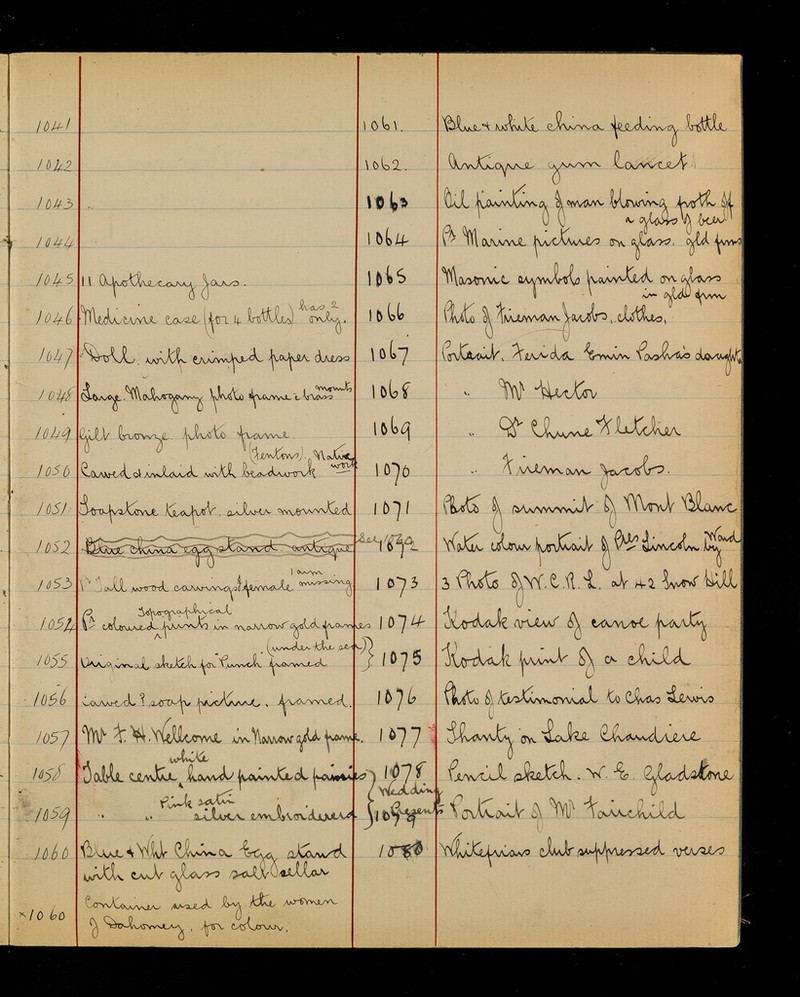 1041
1042
1043
1044
1045 11 Apothecary Jars.
has 2
1046 Medicine case (for 4 bottles) only.
1047 Doll. with crimped paper dress
1048 Large Mahogany photo frame c brass mounts
1049 Gilt bronze photo frame
(Fentons). Native
1050 Carved & inlaid with beadwork work
1051 Soapstone teapot. silver mounted
1052 Blue china egg stand antique See 1060
1 arm
1053 Pr Tall wood carvings, female missing
Topographical
1054 Pr coloured prints in narrow gold frames
(under the sea)
1055 Original sketch for Punch framed
1056 carved ? soap picture, framed.
1057 Mr F. H. Wellcome in Narrow gold frame.
white
1058 Table centre hand painted pansies
Pink satin
1059 " " silver embroidered
Wedding Presents
1060 Blue & Wht China Egg stand
with cut glass salt cellar
×1060 Container used by the women
of Dahomey, for colour.
1061. Blue & white china feeding bottle
1062. Antique gum lancet
1063 Oil painting of man blowing froth off
a glass of beer
1064 Pr Marine pictures on glass. gld frms
1065 Masonic symbols painted on glass
in gld frm
1066 Photo of Fireman Jacobs, clothes,
1067 Portrait. Ferida Emin Pasha's daught
1068 " Mr Hector
1069 " Dr Chune Fletcher
1070 " Fireman Jacobs.
1071 Photo of summit of Mont Blanc
1072 Water colour portrait of Pres Lincoln by Ward
1073 3 Photo of W. C. R. L. at 42 Snow Hill
1074 Kodak view of canoe party
1075 Kodak print of a child
1076 Photo of testimonial to Chas Lewis
1077 Shanty on Lake Chaudiere
1078 Pencil sketch. W. E. Gladstone
1079 Portrait of Mr Fairchild
1080 Whitefriars club suppressed verses